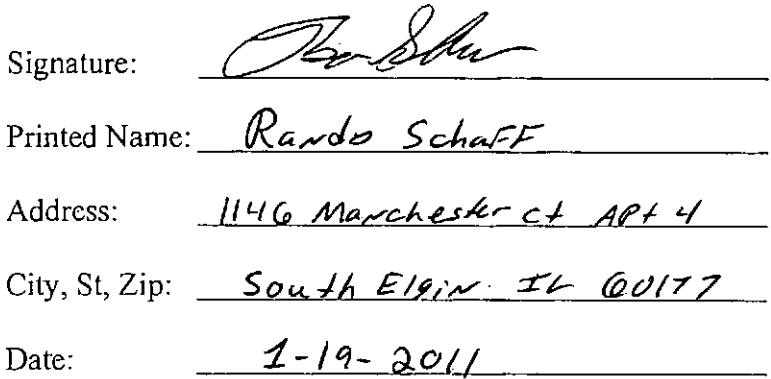 Signature:
Printed Name: Rando Schaff
Address: 1146 Manchester ct APt 4
City, St, Zip: South Elgin IL 60177
Date: 1-19-2011